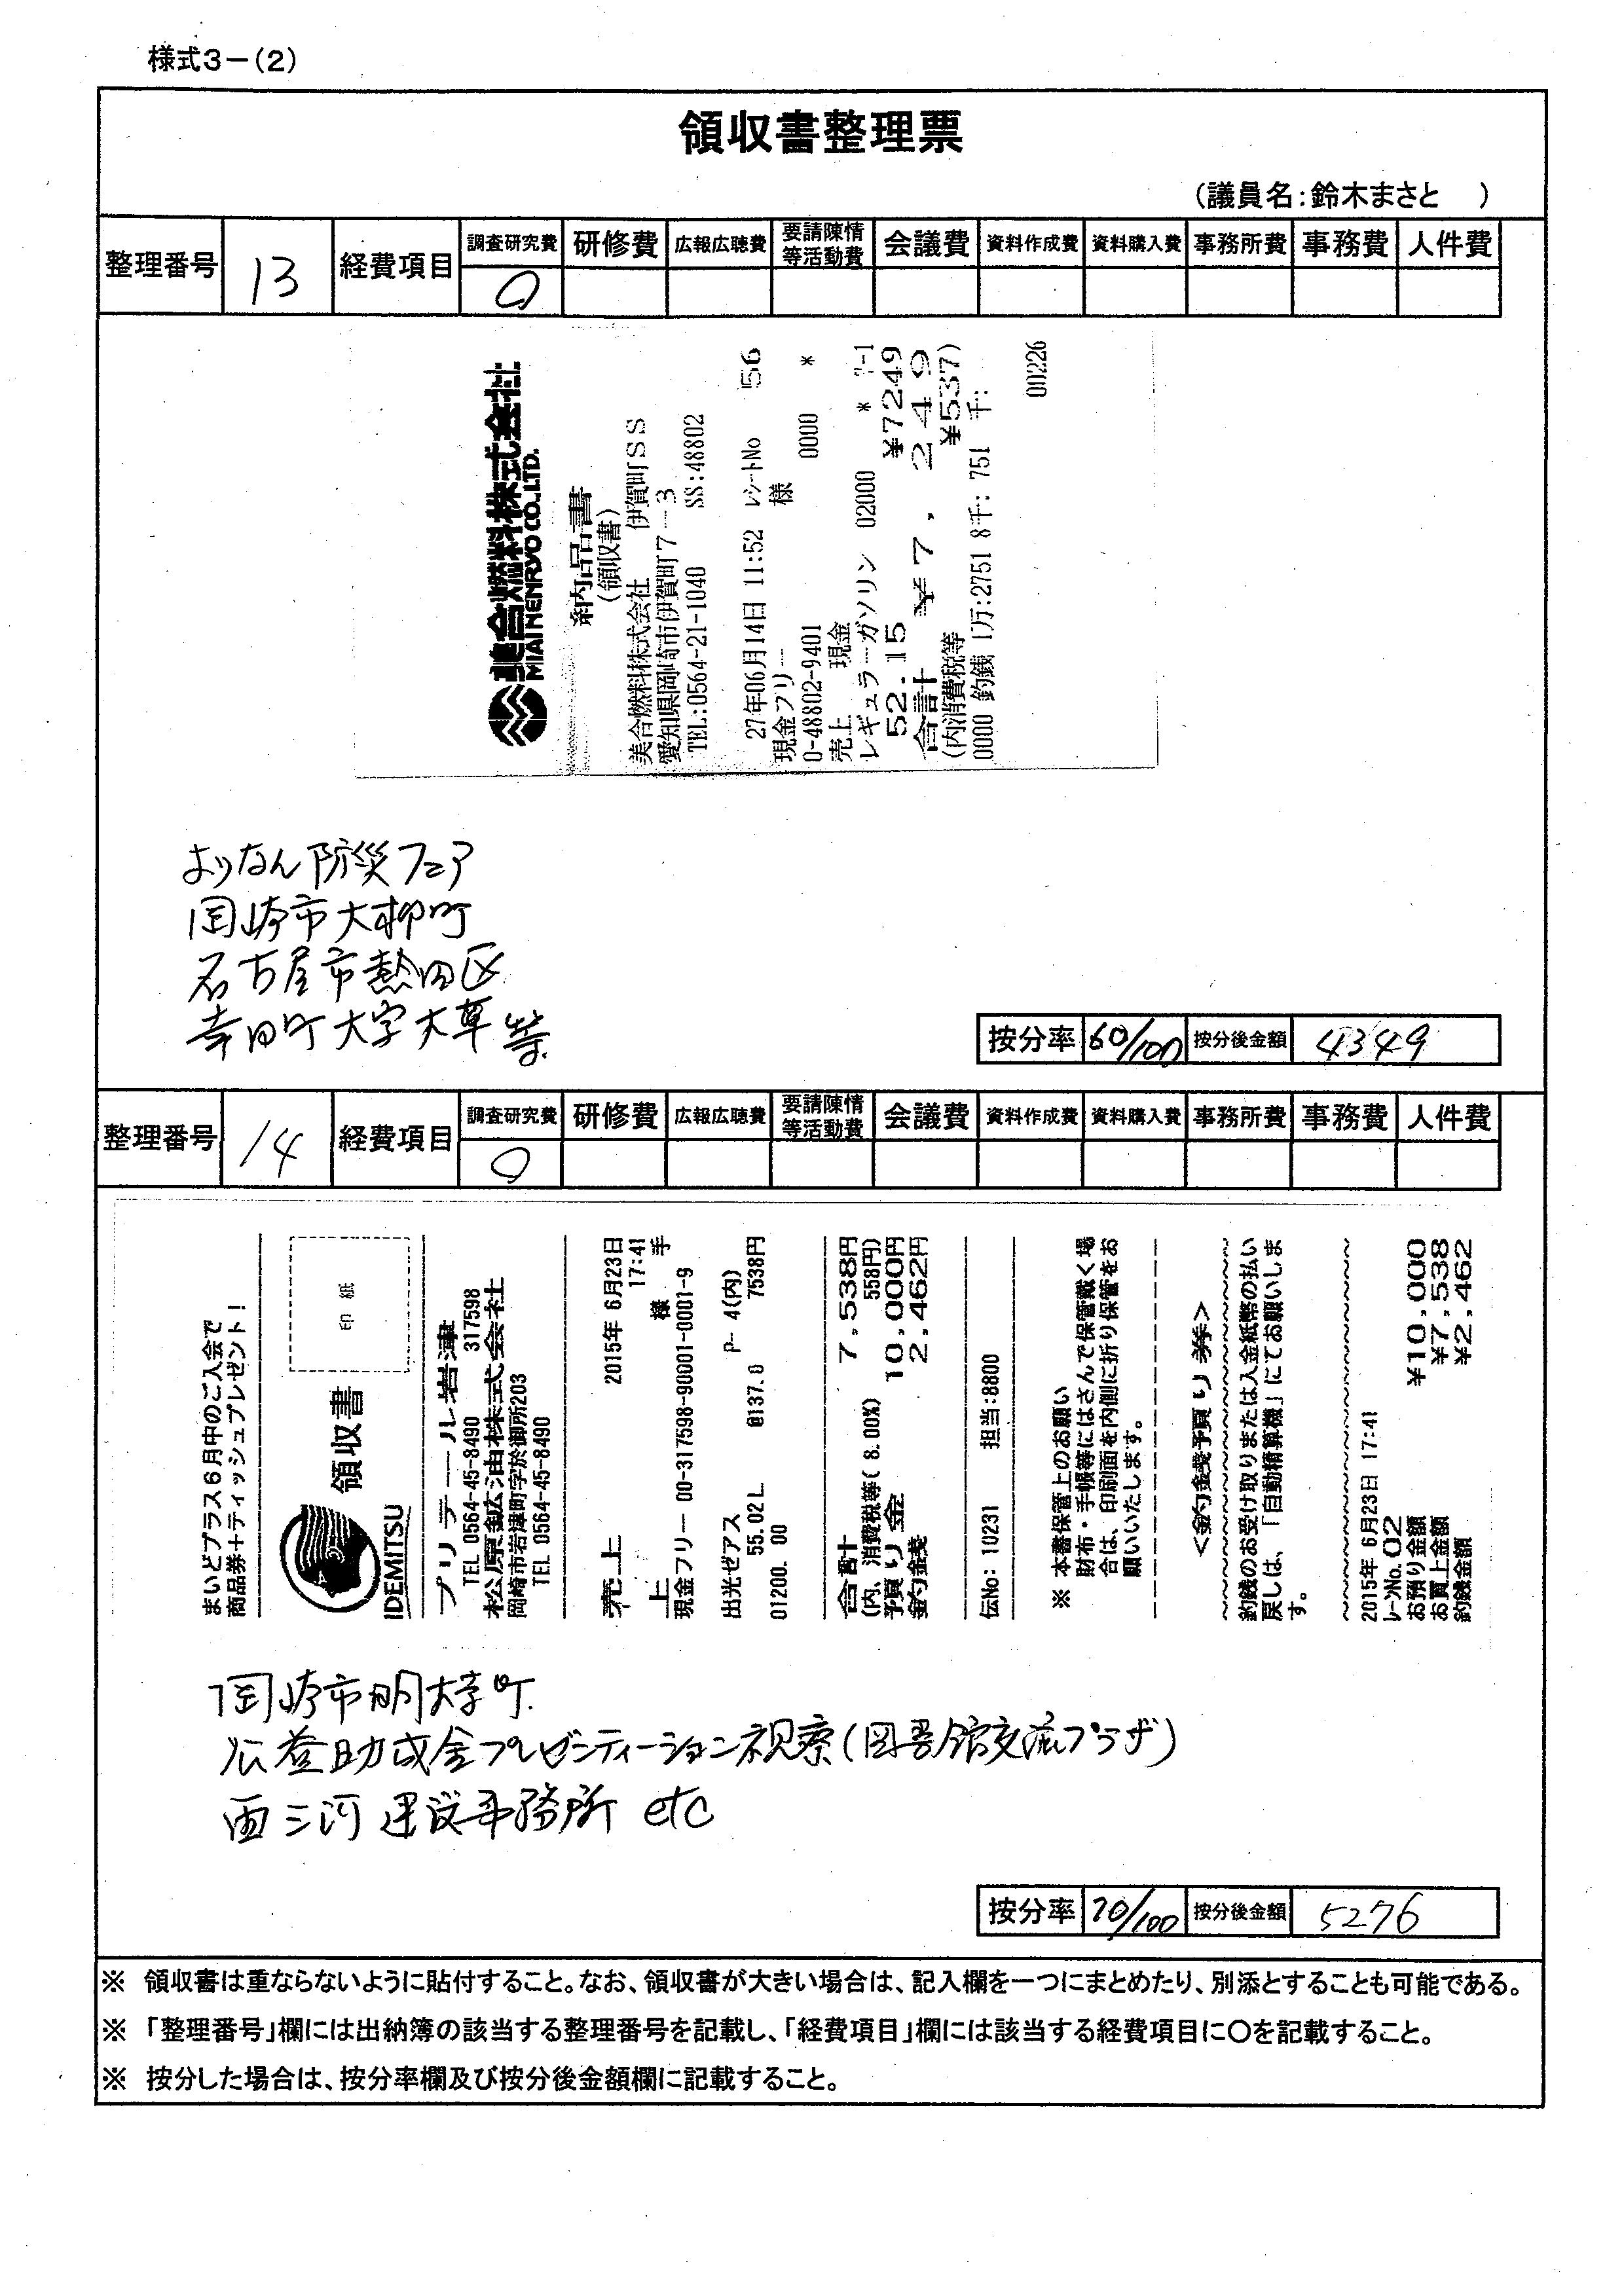 様式3－(2)
領収書整理票
(議員名:鈴木まさと　)
整理番号 13 経費項目 調査研究費 研修費 広報広聴費 要請陳情等活動費 会議費 資料作成費 資料購入費 事務所費 事務費 人件費
○
美合燃料株式会社
MIAI NENRYO CO.,LTD.
納品書
(領収書)
美合燃料株式会社　伊賀町SS
愛知県岡崎市伊賀町7－3
TEL:0564-21-1040 SS:48802
27年06月14日 11:52 レシートNo 56
現金フリー 様
0-48802-9401 0000 *
売上 現金
レギュラーガソリン 02000 * 7-1
52.15 ¥7249
合計 ¥7,249
(内消費税等 ¥537)
0000 釣銭 1万:2751 8千: 751 千:
00226
よりなん防災フェア
岡崎市大柳町
名古屋市熱田区
幸田町大字大草等
按分率 60/100 按分後金額 4349
整理番号 14 経費項目 調査研究費 研修費 広報広聴費 要請陳情等活動費 会議費 資料作成費 資料購入費 事務所費 事務費 人件費
○
まいどプラス6月中のご入会で
商品券+ティッシュプレゼント!
IDEMITSU
領収書
印 紙
プリテール岩津
TEL 0564-45-8490 317598
松原鉱油株式会社
岡崎市岩津町字於御所203
TEL 0564-45-8490
売上 2015年 6月23日
17:41
上 様 手
現金フリー 00-317598-90001-0001-9
出光ゼアス P- 4(内)
55.02L @137.0 7538円
01200. 00
合計 7,538円
(内、消費税等( 8.00%) 558円)
預り金 10,000円
釣銭 2,462円
伝No: 10231 担当:8800
※ 本書保管上のお願い
財布・手帳等にはさんで保管戴く場
合は、印刷面を内側に折り保管をお
願いいたします。
<釣銭預り券>
釣銭のお受け取りまたは入金紙幣の払い
戻しは、「自動精算機」にてお願いしま
す。
2015年 6月23日 17:41
レーンNo.02
お預り金額 ¥10,000
お買上金額 ¥7,538
釣銭金額 ¥2,462
岡崎市明大寺町
公益助成金プレゼンティーション視察(図書館交流プラザ)
西三河建設事務所 etc
按分率 70/100 按分後金額 5276
※ 領収書は重ならないように貼付すること。なお、領収書が大きい場合は、記入欄を一つにまとめたり、別添とすることも可能である。
※ 「整理番号」欄には出納簿の該当する整理番号を記載し、「経費項目」欄には該当する経費項目に○を記載すること。
※ 按分した場合は、按分率欄及び按分後金額欄に記載すること。